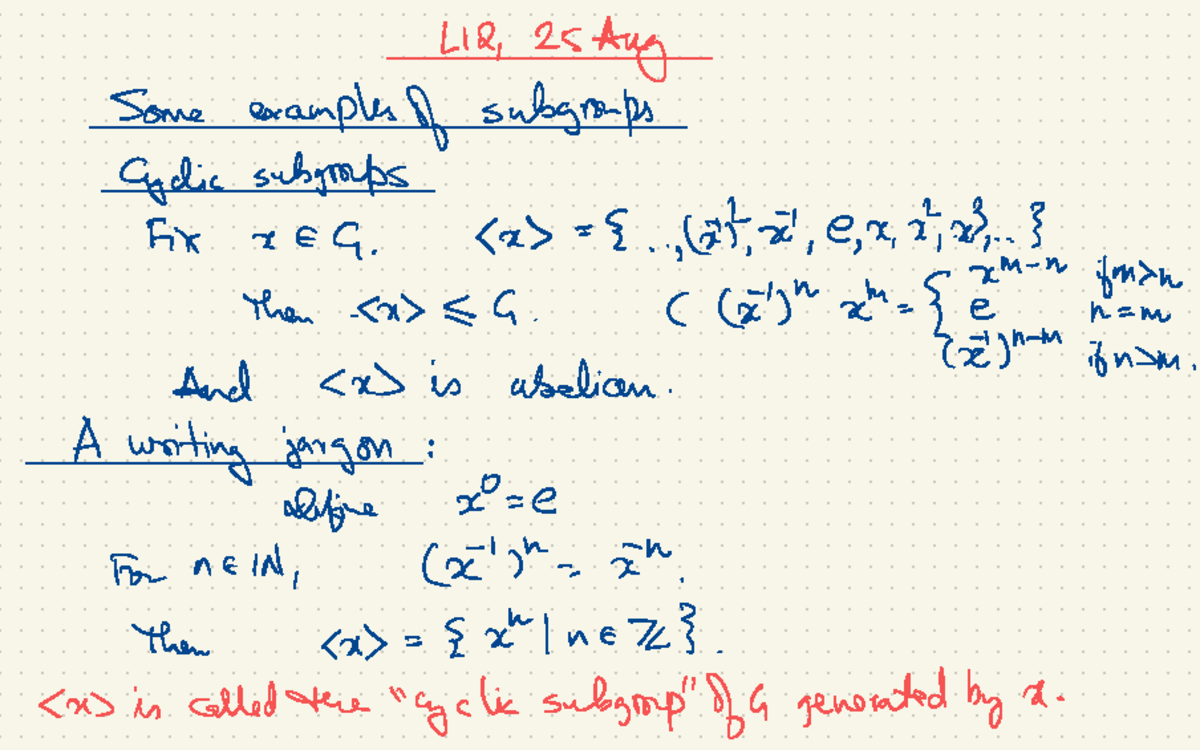 L12, 25 Aug
Some examples of subgroups
Cyclic subgroups
Fix x ∈ G. <x> = { .., (x⁻¹)², x⁻¹, e, x, x², x³, .. }
Then <x> ≤ G. ( (x⁻¹)ⁿ xᵐ = { xᵐ⁻ⁿ if m>n
e n = m
(x⁻¹)ⁿ⁻ᵐ if n>m.
And <x> is abelian.
A writing jargon :
Define x⁰ = e
For n ∈ ℕ, (x⁻¹)ⁿ = x⁻ⁿ.
Then <x> = { xⁿ | n ∈ ℤ }.
<x> is called the "cyclic subgroup" of G generated by x.